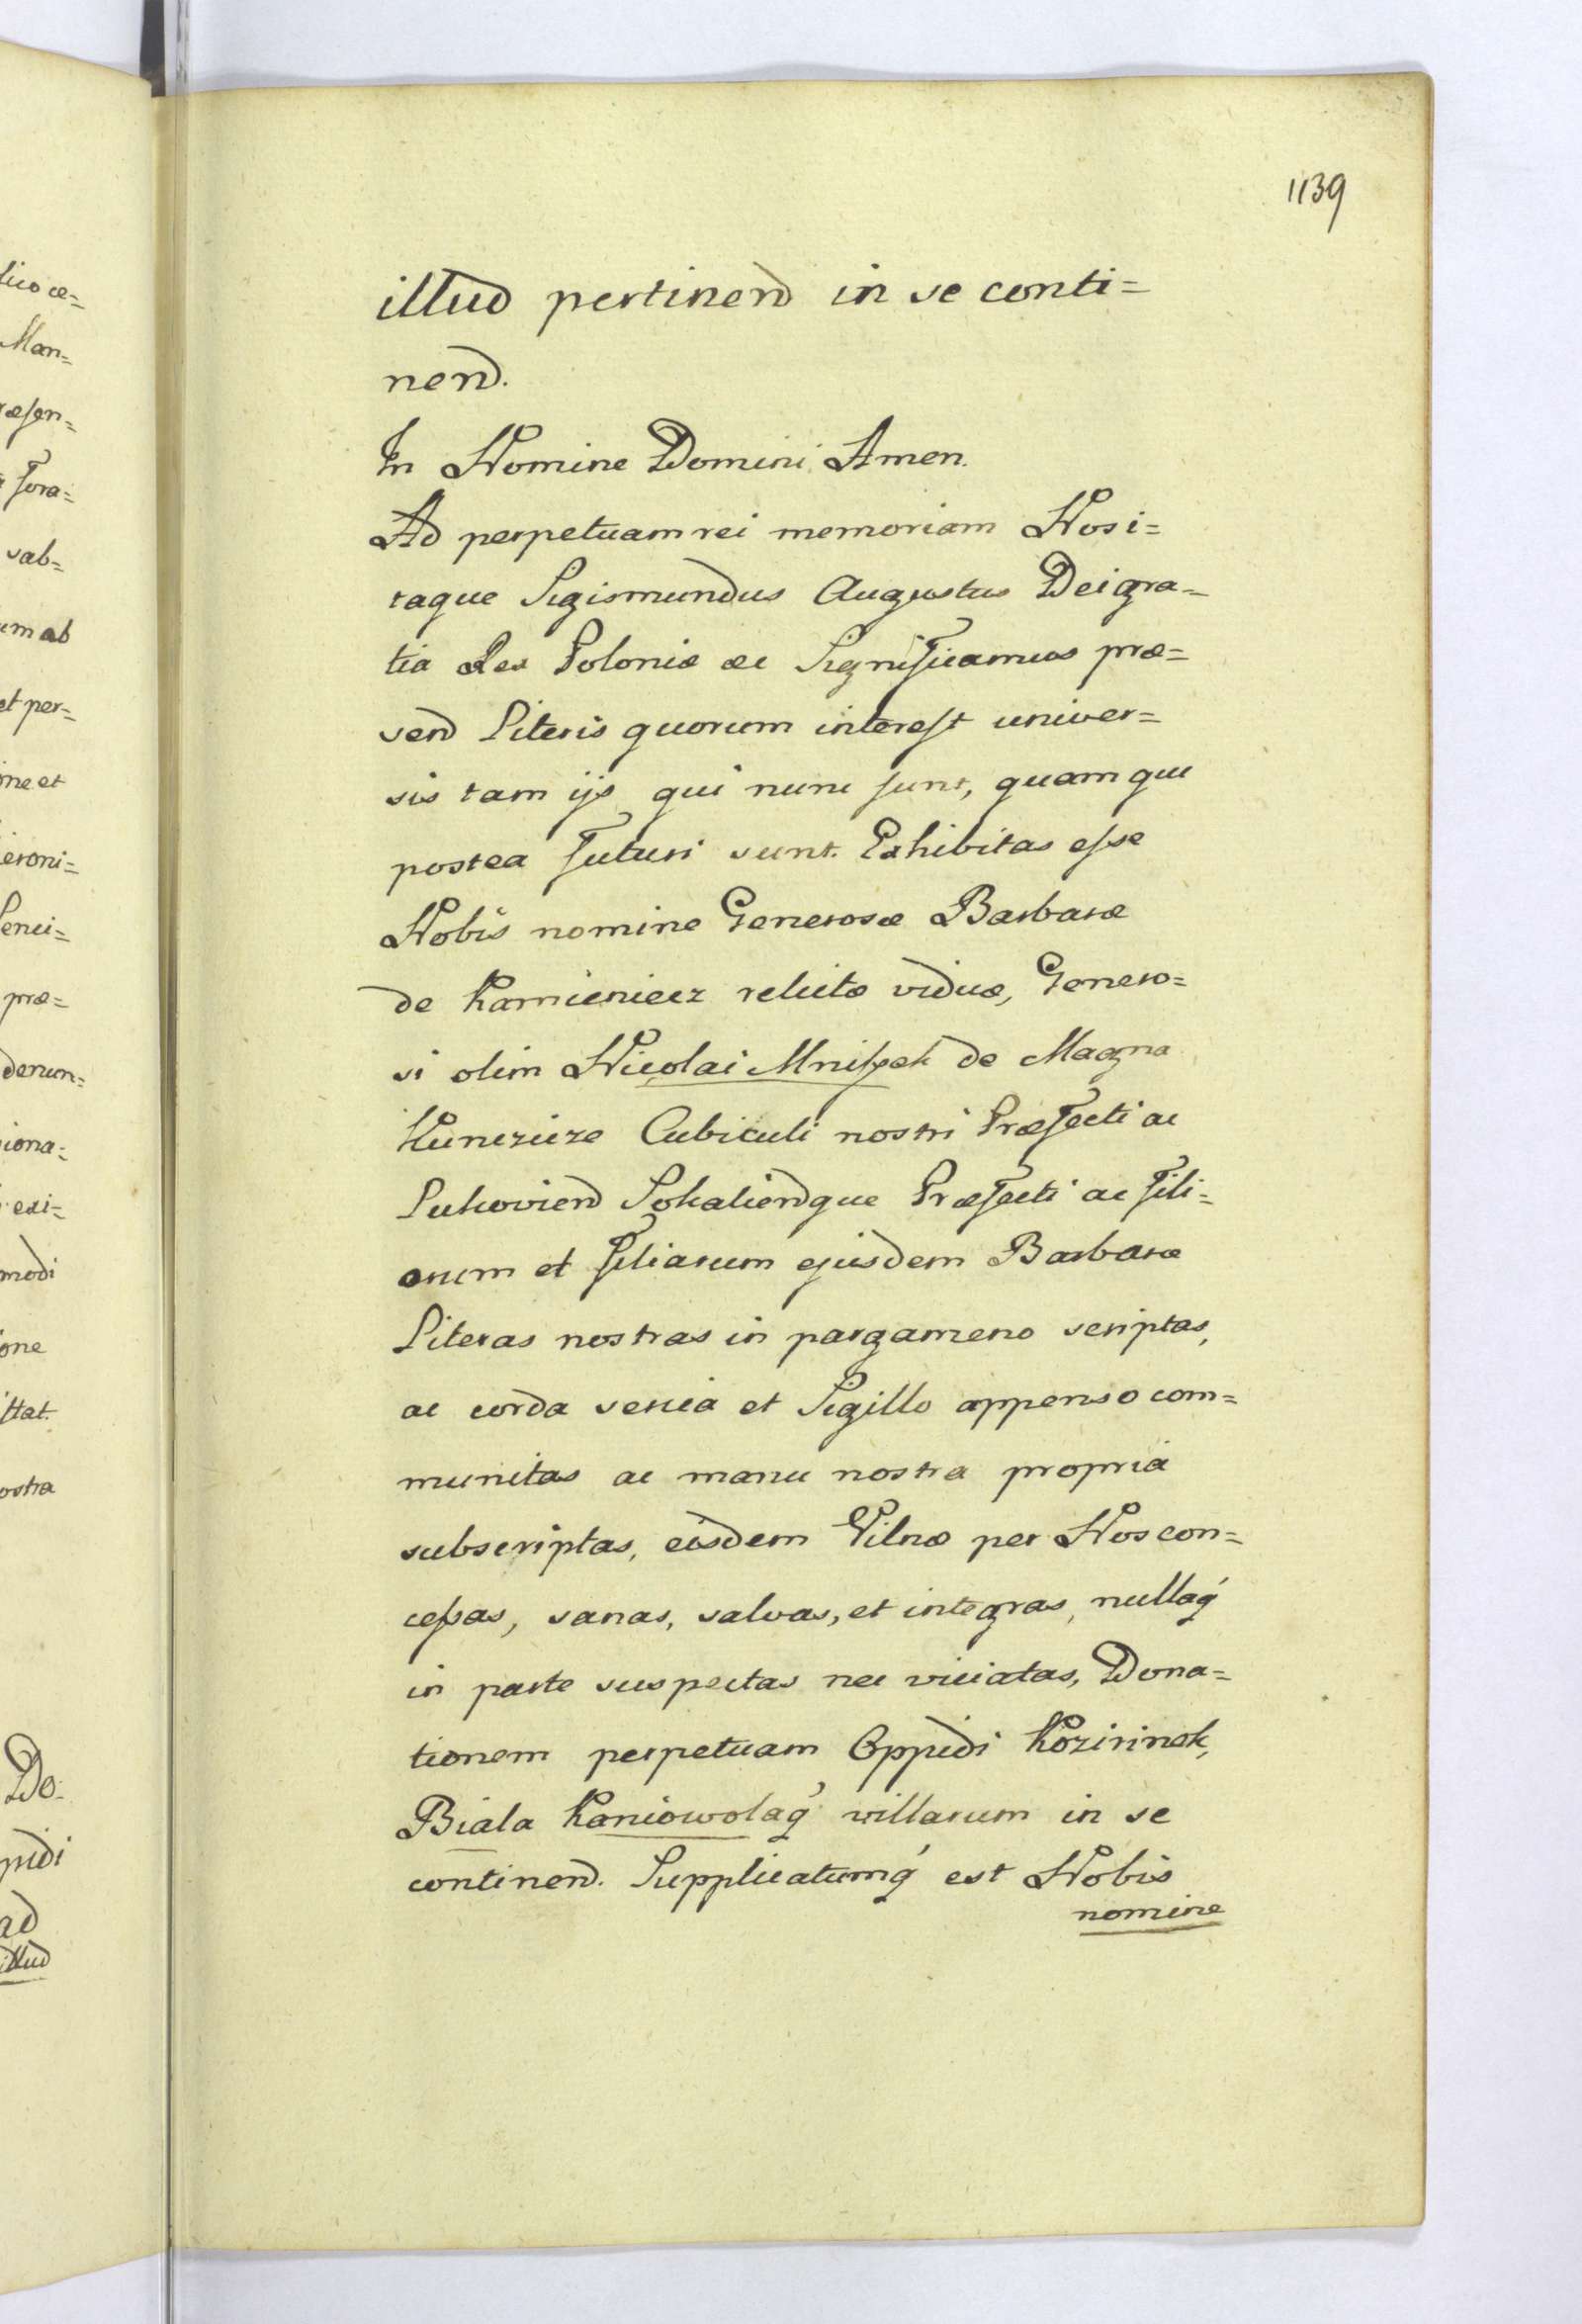 1139
illud pertinend in se conti=
nend.
In Nomine Domini Amen.
Ad perpetuam rei memoriam Nos i=
taque Sigismundus Augustus Dei gra=
tia Rex Poloniæ &c Significamus præ=
send Literis quorum interest univer=
sis tam ijs qui nunc sunt, quam qui
postea futuri sunt. Exhibitas esse
Nobis nomine Generosæ Barbaræ
de Kamieniecz relictæ viduæ, Genero=
si olim Nicolai Mniszek de Magna
Kunczicze Cubiculi nostri Præfecti ac
Lukoviend Sokaliendque Præfecti ac fili=
orum et filiarum ejusdem Barbaræ
Literas nostras in pargameno scriptas,
ac corda sericia et Sigillo appenso com=
munitas ac manu nostra propria
subscriptas, eisdem Vilnæ per Nos con=
cessas, sanas, salvas, et integras, nullaq́
in parte suspectas nec viciatas, Dona=
tionem perpetuam Oppidi Kozirinek,
Biala Kaniowolaq́ villarum in se
continend. Supplicatumq́ est Nobis
nomine
lico æ=
Man=
ræsen=
fora=
sab=
um ab
et per=
ne et
eroni=
præ=
denun=
iona=
exi=
modi
one
ittat.
ostra
Do=
pidi
ad
illud